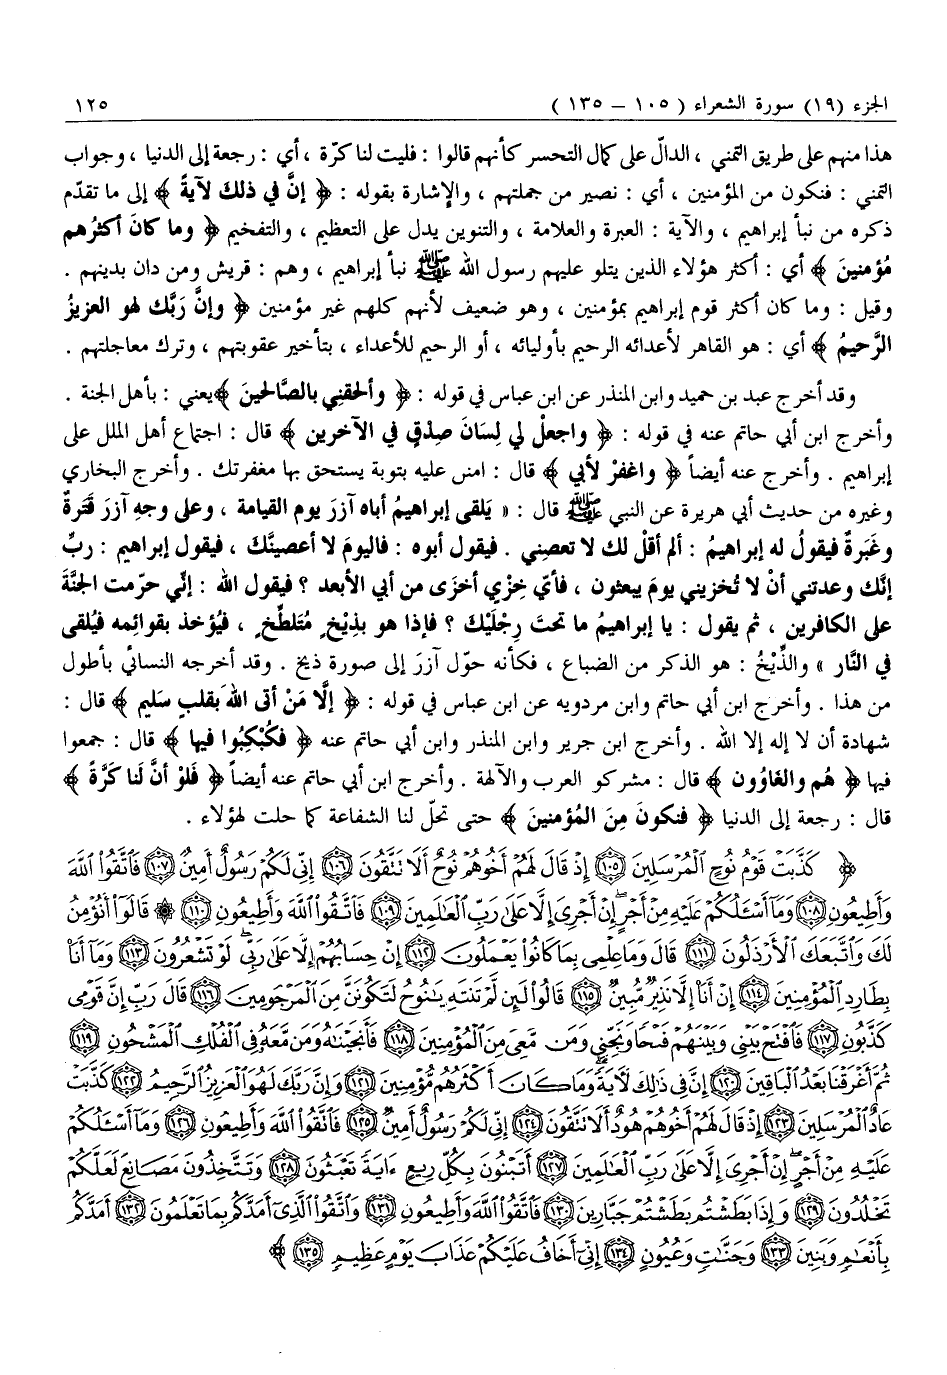 الجزء (١٩) سورة الشعراء ( ١٠٥ – ١٣٥ ) ١٢٥
هذا منهم على طريق التمني ، الدالّ على كمال التحسر كأنهم قالوا : فليت لنا كرّة ، أي : رجعة إلى الدنيا ، وجواب
التمني : فنكون من المؤمنين ، أي : نصير من جملتهم ، والإشارة بقوله : ﴿ إنَّ في ذلكَ لآيةً ﴾ إلى ما تقدّم
ذكره من نبأ إبراهيم ، والآية : العبرة والعلامة ، والتنوين يدل على التعظيم ، والتفخيم ﴿ وما كانَ أكثرُهم
مُؤمنينَ ﴾ أي : أكثر هؤلاء الذين يتلو عليهم رسول الله ﷺ نبأ إبراهيم ، وهم : قريش ومن دان بدينهم .
وقيل : وما كان أكثر قوم إبراهيم بمؤمنين ، وهو ضعيف لأنهم كلهم غير مؤمنين ﴿ وإنَّ رَبَّك لهو العزيزُ
الرَّحيمُ ﴾ أي : هو القاهر لأعدائه الرحيم بأوليائه ، أو الرحيم للأعداء ، بتأخير عقوبتهم ، وترك معاجلتهم .
وقد أخرج عبد بن حميد وابن المنذر عن ابن عباس في قوله : ﴿ وألحقنِي بالصَّالحينَ ﴾يعني : بأهل الجنة .
وأخرج ابن أبي حاتم عنه في قوله : ﴿ واجعلْ لي لِسَانَ صِدْقٍ في الآخرين ﴾ قال : اجتماع أهل الملل على
إبراهيم . وأخرج عنه أيضاً ﴿ واغفرْ لأبي ﴾ قال : امنن عليه بتوبة يستحق بها مغفرتك . وأخرج البخاري
وغيره من حديث أبي هريرة عن النبي ﷺ قال : « يَلقى إبراهيمُ أباه آزرَ يوم القيامة ، وعلى وجهِ آزرَ قَتَرةٌ
وغَبَرةٌ فيقولُ له إبراهيمُ : ألم أقلْ لك لا تعصِني . فيقول أبوه : فاليومَ لا أعصينَّكَ ، فيقول إبراهيم : ربِّ
إنَّك وعدتني أنْ لا تُخزيني يومَ يبعثون ، فأيّ خِزْيٍ أخزَى من أبي الأبعد ؟ فيقول الله : إنِّي حرّمت الجنَّةَ
على الكافرين ، ثم يقول : يا إبراهيمُ ما تحتَ رِجْلَيْكَ ؟ فإذا هو بذِيْخٍ مُتَلطِّخٍ ، فيُؤخذ بقوائمه فيُلقى
في النَّار » والذِّيْخُ : هو الذكر من الضباع ، فكأنه حوّل آزرَ إلى صورة ذيخ . وقد أخرجه النسائي بأطول
من هذا . وأخرج ابن أبي حاتم وابن مردويه عن ابن عباس في قوله : ﴿ إلَّا مَنْ أتى اللهَ بقلبٍ سَليم ﴾ قال :
شهادة أن لا إله إلا الله . وأخرج ابن جرير وابن المنذر وابن أبي حاتم عنه ﴿ فكُبْكِبُوا فيها ﴾ قال : جمعوا
فيها ﴿ هُم والغَاوُون ﴾ قال : مشركو العرب والآلهة . وأخرج ابن أبي حاتم عنه أيضاً ﴿ فَلوْ أنَّ لَنا كَرَّةً ﴾
قال : رجعة إلى الدنيا ﴿ فنكونَ مِنَ المُؤمنينَ ﴾ حتى تحلّ لنا الشفاعة كما حلت لهؤلاء .
﴿ كَذَّبَتْ قَوْمُ نُوحٍ ٱلْمُرْسَلِينَ ١٠٥ إِذْ قَالَ لَهُمْ أَخُوهُمْ نُوحٌ أَلَا تَتَّقُونَ ١٠٦ إِنِّي لَكُمْ رَسُولٌ أَمِينٌ ١٠٧ فَٱتَّقُوا۟ ٱللَّهَ
وَأَطِيعُونِ ١٠٨ وَمَآ أَسْـَٔلُكُمْ عَلَيْهِ مِنْ أَجْرٍ إِنْ أَجْرِيَ إِلَّا عَلَىٰ رَبِّ ٱلْعَـٰلَمِينَ ١٠٩ فَٱتَّقُوا۟ ٱللَّهَ وَأَطِيعُونِ ١١٠ ۞ قَالُوٓا۟ أَنُؤْمِنُ
لَكَ وَٱتَّبَعَكَ ٱلْأَرْذَلُونَ ١١١ قَالَ وَمَا عِلْمِي بِمَا كَانُوا۟ يَعْمَلُونَ ١١٢ إِنْ حِسَابُهُمْ إِلَّا عَلَىٰ رَبِّي لَوْ تَشْعُرُونَ ١١٣ وَمَآ أَنَا۠
بِطَارِدِ ٱلْمُؤْمِنِينَ ١١٤ إِنْ أَنَا۠ إِلَّا نَذِيرٌ مُّبِينٌ ١١٥ قَالُوا۟ لَئِن لَّمْ تَنتَهِ يَـٰنُوحُ لَتَكُونَنَّ مِنَ ٱلْمَرْجُومِينَ ١١٦ قَالَ رَبِّ إِنَّ قَوْمِي
كَذَّبُونِ ١١٧ فَٱفْتَحْ بَيْنِي وَبَيْنَهُمْ فَتْحًا وَنَجِّنِي وَمَن مَّعِيَ مِنَ ٱلْمُؤْمِنِينَ ١١٨ فَأَنجَيْنَـٰهُ وَمَن مَّعَهُۥ فِي ٱلْفُلْكِ ٱلْمَشْحُونِ ١١٩
ثُمَّ أَغْرَقْنَا بَعْدُ ٱلْبَاقِينَ ١٢٠ إِنَّ فِي ذَٰلِكَ لَآيَةً وَمَا كَانَ أَكْثَرُهُم مُّؤْمِنِينَ ١٢١ وَإِنَّ رَبَّكَ لَهُوَ ٱلْعَزِيزُ ٱلرَّحِيمُ ١٢٢ كَذَّبَتْ
عَادٌ ٱلْمُرْسَلِينَ ١٢٣ إِذْ قَالَ لَهُمْ أَخُوهُمْ هُودٌ أَلَا تَتَّقُونَ ١٢٤ إِنِّي لَكُمْ رَسُولٌ أَمِينٌ ١٢٥ فَٱتَّقُوا۟ ٱللَّهَ وَأَطِيعُونِ ١٢٦ وَمَآ أَسْـَٔلُكُمْ
عَلَيْهِ مِنْ أَجْرٍ إِنْ أَجْرِيَ إِلَّا عَلَىٰ رَبِّ ٱلْعَـٰلَمِينَ ١٢٧ أَتَبْنُونَ بِكُلِّ رِيعٍ ءَايَةً تَعْبَثُونَ ١٢٨ وَتَتَّخِذُونَ مَصَانِعَ لَعَلَّكُمْ
تَخْلُدُونَ ١٢٩ وَإِذَا بَطَشْتُم بَطَشْتُمْ جَبَّارِينَ ١٣٠ فَٱتَّقُوا۟ ٱللَّهَ وَأَطِيعُونِ ١٣١ وَٱتَّقُوا۟ ٱلَّذِيٓ أَمَدَّكُم بِمَا تَعْلَمُونَ ١٣٢ أَمَدَّكُم
بِأَنْعَـٰمٍ وَبَنِينَ ١٣٣ وَجَنَّـٰتٍ وَعُيُونٍ ١٣٤ إِنِّيٓ أَخَافُ عَلَيْكُمْ عَذَابَ يَوْمٍ عَظِيمٍ ١٣٥ ﴾